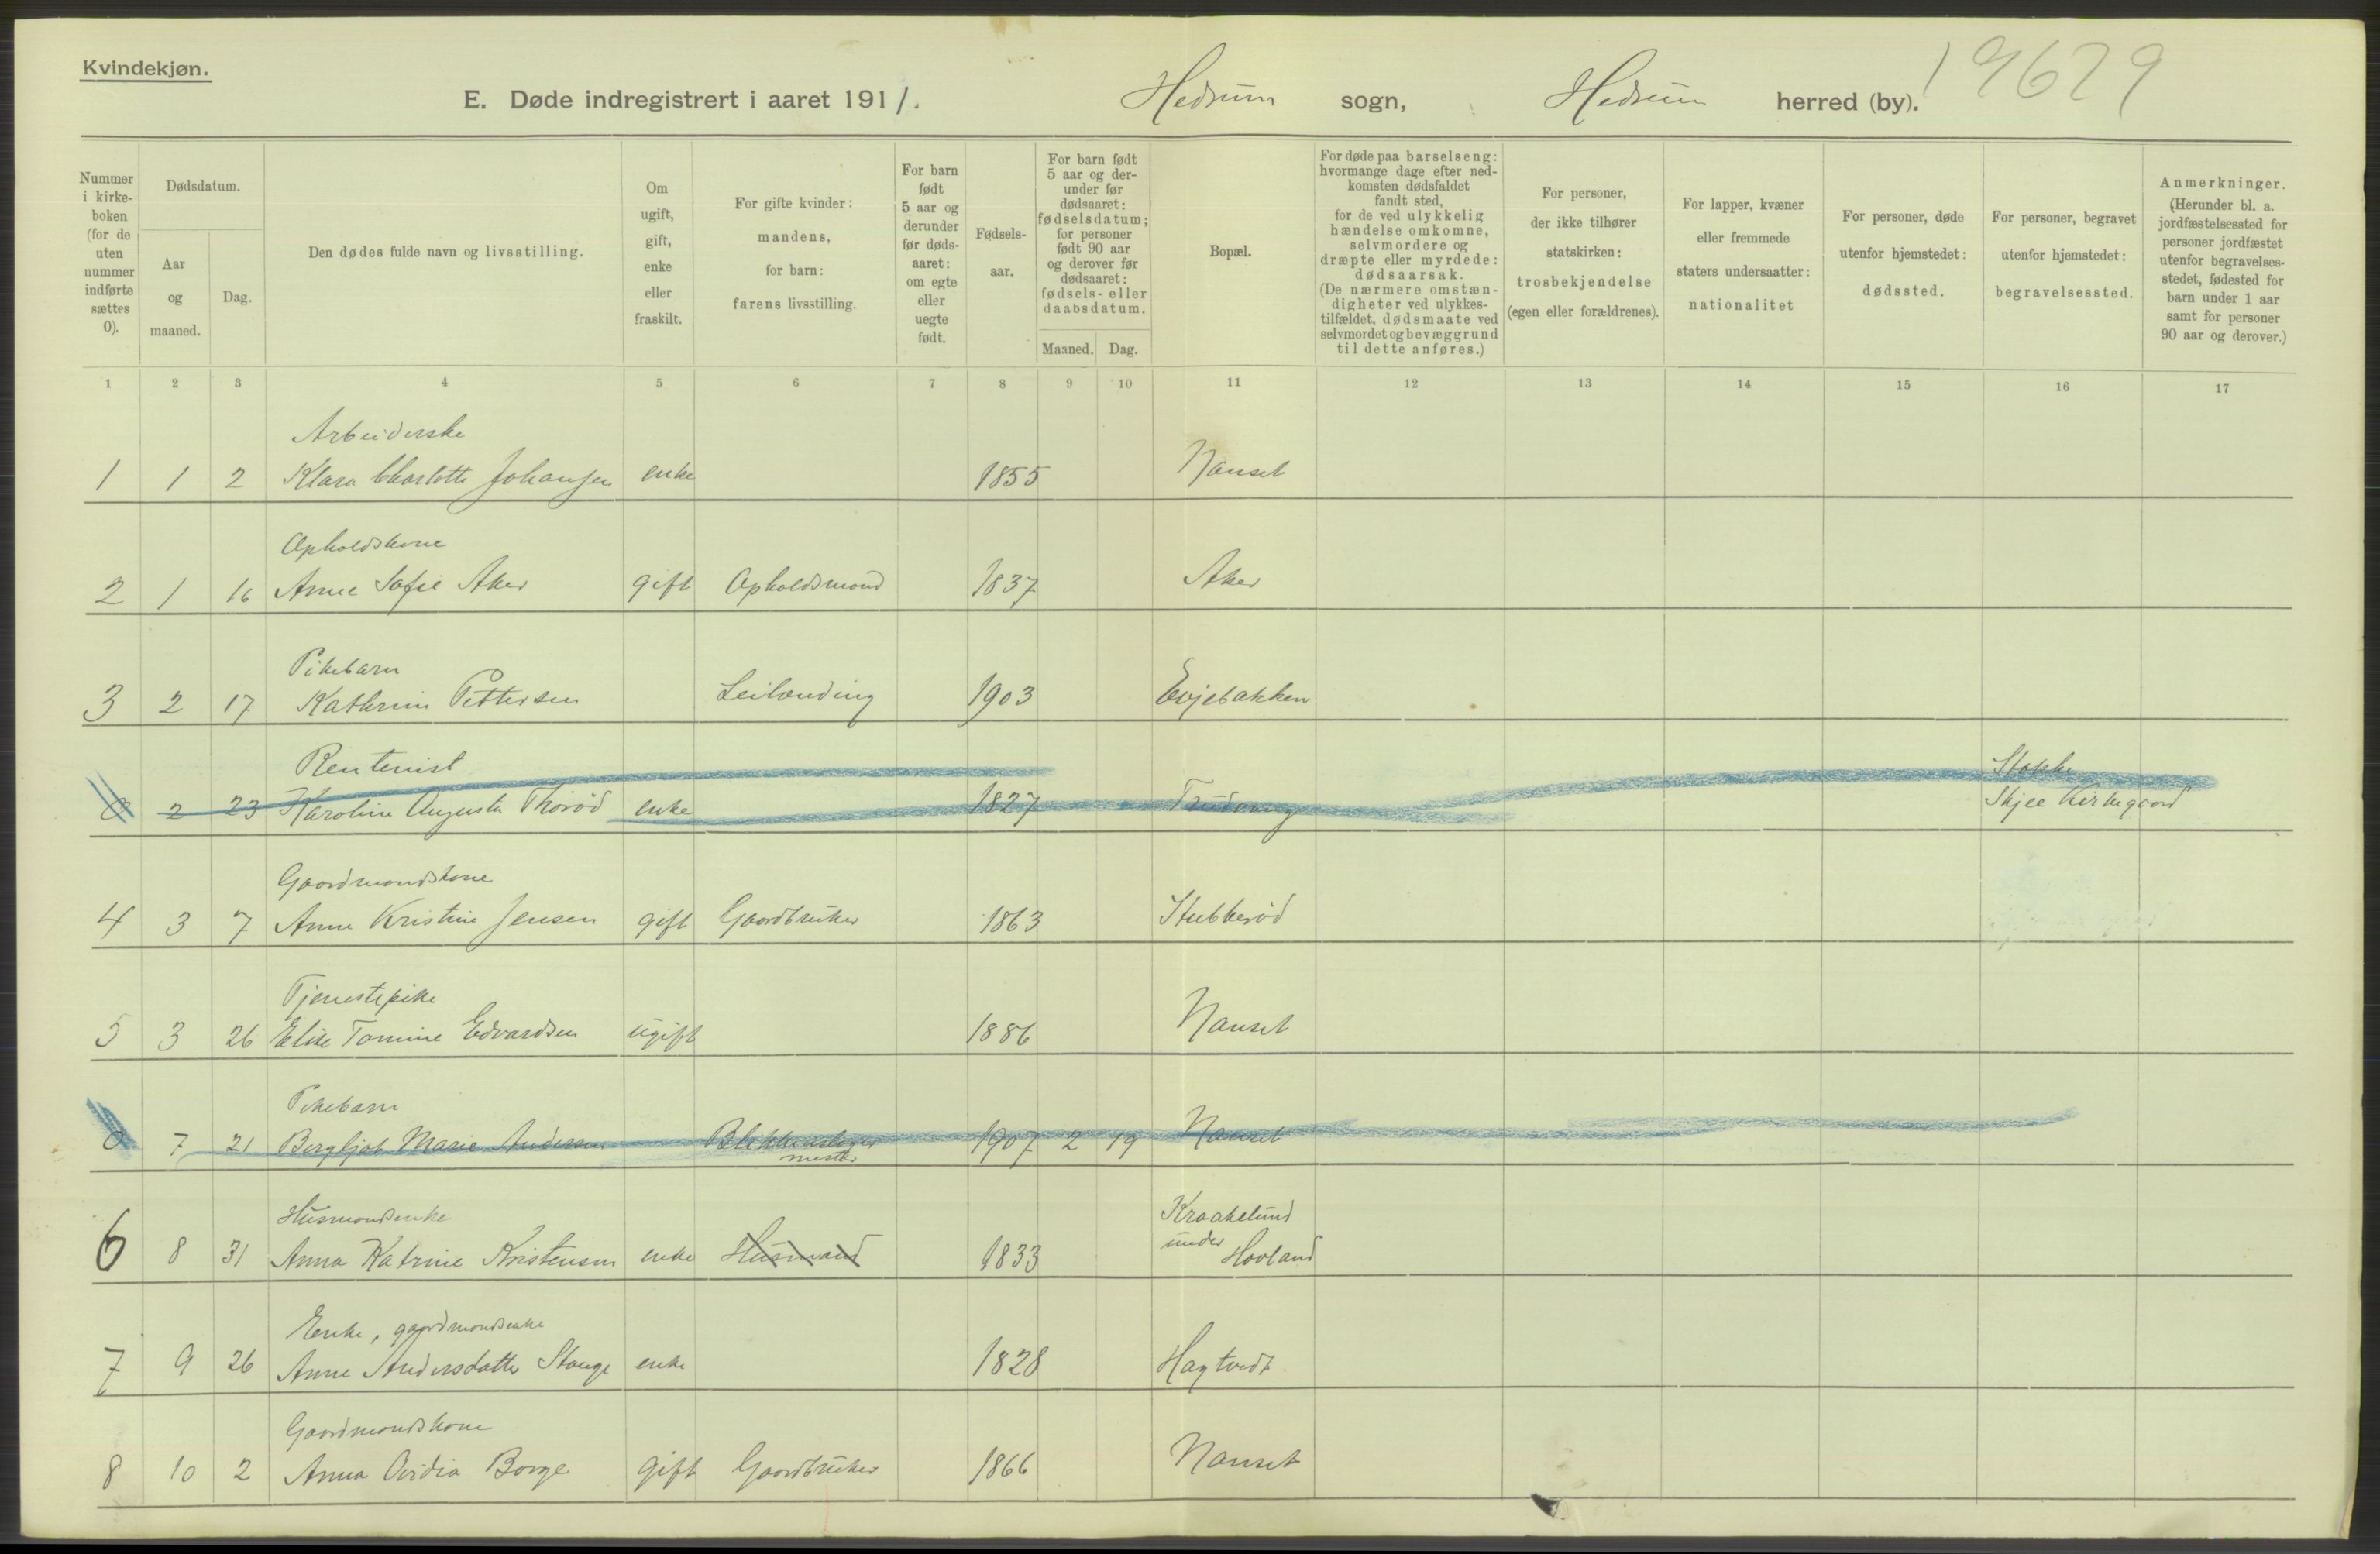 Kvindekjøn.
E. Døde indregistrert i aaret 1911. Hedrum sogn, Hedrum herred (by). 19629
Nummer i kirke-boken (for de uten nummer indførte sættes 0).
Dødsdatum.
Aar og maaned.
Dag.
Den dødes fulde navn og livsstilling.
Om ugift, gift, enke eller fraskilt.
For gifte kvinder: mandens, for barn: farens livsstilling.
For barn født 5 aar og derunder før døds-aaret: om egte eller uegte født.
Fødsels-aar.
For barn født 5 aar og der-under før dødsaaret: fødselsdatum; for personer født 90 aar og derover før dødsaaret: fødsels- eller daabsdatum.
Maaned. Dag.
Bopæl.
For døde paa barselseng: hvormange dage efter ned-komsten dødsfaldet fandt sted, for de ved ulykkelig hændelse omkomne, selvmordere og dræpte eller myrdede: dødsaarsak. (De nærmere omstæn-digheter ved ulykkes-tilfældet, dødsmaate ved selvmordet og bevæggrund til dette anføres.)
For personer, der ikke tilhører statskirken: trosbekjendelse (egen eller forældrenes).
For lapper, kvæner eller fremmede staters undersaatter: nationalitet
For personer, døde utenfor hjemstedet: dødssted.
For personer, begravet utenfor hjemstedet: begravelsessted.
Anmerkninger. (Herunder bl. a. jordfæstelsessted for personer jordfæstet utenfor begravelses-stedet, fødested for barn under 1 aar samt for personer 90 aar og derover.)
1 2 3 4 5 6 7 8 9 10 11 12 13 14 15 16 17
Arbeiderske
1 1 2 Klara Charlotte Johansen enke 1855 Nanset
Opholdskone
2 1 16 Anne Sofie Aker gift Opholdsmand 1837 Aker
Pikebarn
3 2 17 Kathrine Pettersen Leilænding 1903 Evjebakken
Rentenist Stokke
0 2 23 Karoline Augusta Thorød enke 1827 Skjee Kirkegaard
Gaardmandskone
4 3 7 Anne Kristine Jensen gift Gaardbruker 1863 Stubberød
Tjenestepike
5 3 26 Elise Tomine Edvardsen ugift 1886 Nanset
Pikebarn
0 7 21 Bergljot Marie Andersen Blikkenslager mester 1907 2 19 Nanset
Husmandsenke Kraakelund
6 8 31 Anna Katrine Kristensen enke Husmand 1833 under Hovland
Enke, gaardmandsenke
7 9 26 Anne Andersdatter Stange enke 1828 Hagtvedt
Gaardmandskone
8 10 2 Anna Ovidia Borge gift Gaardbruker 1866 Nanset